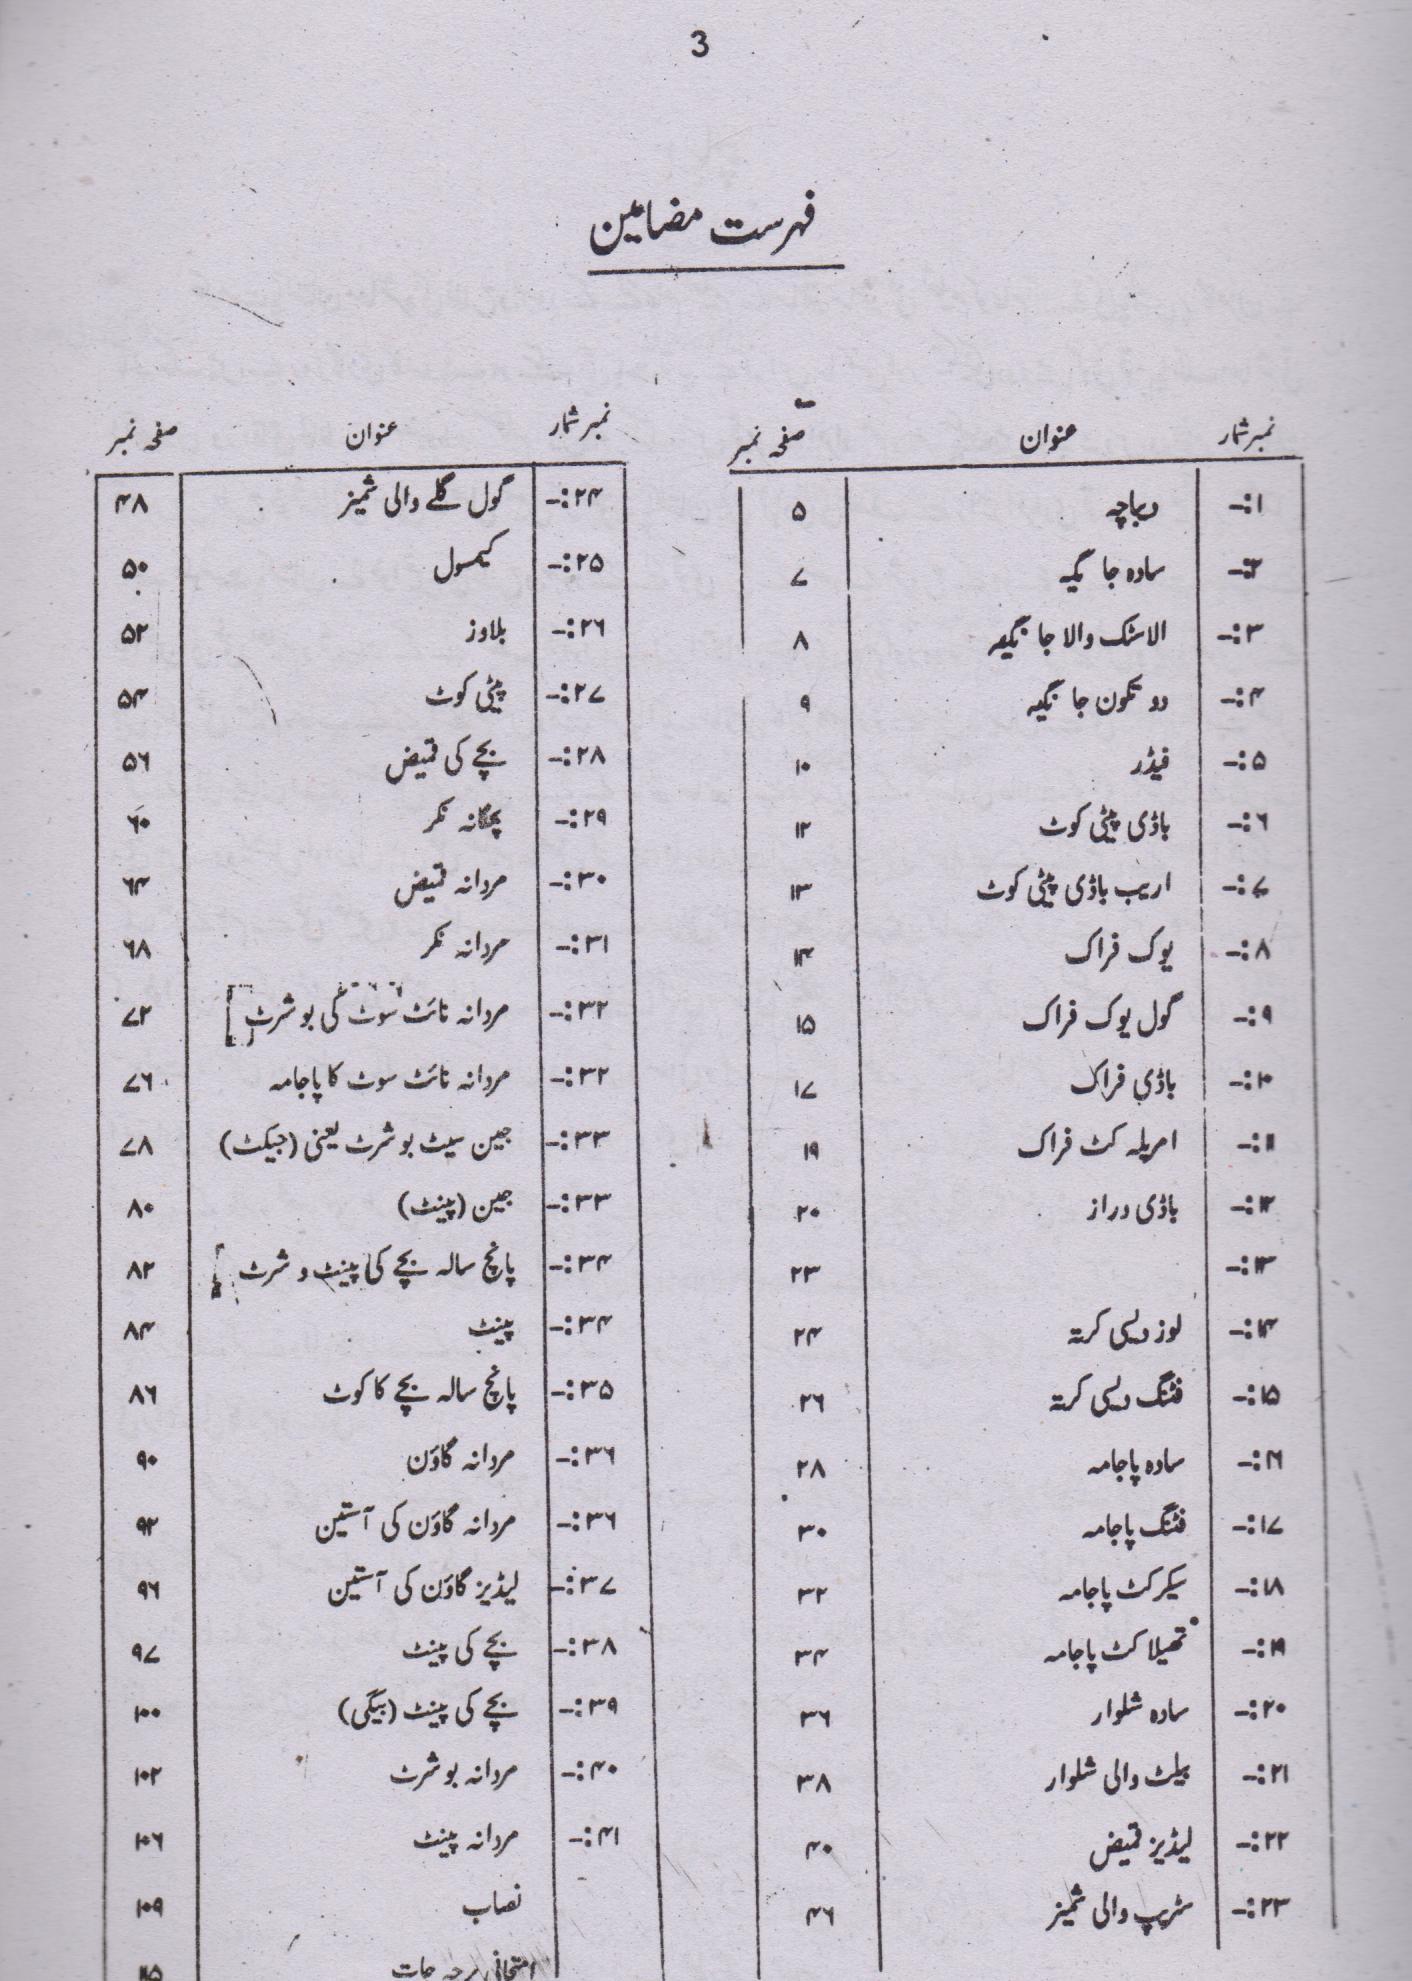 3
فہرست مضامین
نمبر شمار عنوان صفحہ نمبر
۱:- دیباچہ ۵
۲:- سادہ جانگیہ ۷
۳:- الاسٹک والا جانگیہ ۸
۴:- دو تکون جانگیہ ۹
۵:- فیڈر ۱۰
۶:- باڈی پیٹی کوٹ ۱۲
۷:- اریب باڈی پیٹی کوٹ ۱۳
۸:- یوک فراک ۱۴
۹:- گول یوک فراک ۱۵
۱۰:- باڈی فراک ۱۷
۱۱:- امریلہ کٹ فراک ۱۹
۱۲:- باڈی دراز ۲۰
۱۳:- ۲۳
۱۴:- لوز دیسی کرتہ ۲۴
۱۵:- فٹنگ دیسی کرتہ ۲۶
۱۶:- سادہ پاجامہ ۲۸
۱۷:- فٹنگ پاجامہ ۳۰
۱۸:- سیکرکٹ پاجامہ ۳۲
۱۹:- تھیلا کٹ پاجامہ ۳۴
۲۰:- سادہ شلوار ۳۶
۲۱:- بیلٹ والی شلوار ۳۸
۲۲:- لیڈیز قمیض ۴۰
۲۳:- سٹریپ والی شمیز ۴۶
نمبر شمار عنوان صفحہ نمبر
۲۴:- گول گلے والی شمیز ۴۸
۲۵:- کیمسول ۵۰
۲۶:- بلاوز ۵۲
۲۷:- پیٹی کوٹ ۵۴
۲۸:- بچے کی قمیض ۵۶
۲۹:- بچگانہ نکر ۶۰
۳۰:- مردانہ قمیض ۶۴
۳۱:- مردانہ نکر ۶۸
۳۲:- مردانہ نائٹ سوٹ کی بوشرٹ ۷۲
۳۲:- مردانہ نائٹ سوٹ کا پاجامہ ۷۶
۳۳:- جین سیٹ بوشرٹ یعنی (جیکٹ) ۷۸
۳۳:- جین (پینٹ) ۸۰
۳۴:- پانچ سالہ بچے کی پینٹ و شرٹ ۸۲
۳۴:- پینٹ ۸۴
۳۵:- پانچ سالہ بچے کا کوٹ ۸۶
۳۶:- مردانہ گاؤن ۹۰
۳۶:- مردانہ گاؤن کی آستین ۹۲
۳۷:- لیڈیز گاؤن کی آستین ۹۶
۳۸:- بچے کی پینٹ ۹۷
۳۹:- بچے کی پینٹ (بیگی) ۱۰۰
۴۰:- مردانہ بوشرٹ ۱۰۲
۴۱:- مردانہ پینٹ ۱۰۶
نصاب ۱۰۹
امتحانی پرچہ جات ۱۱۵